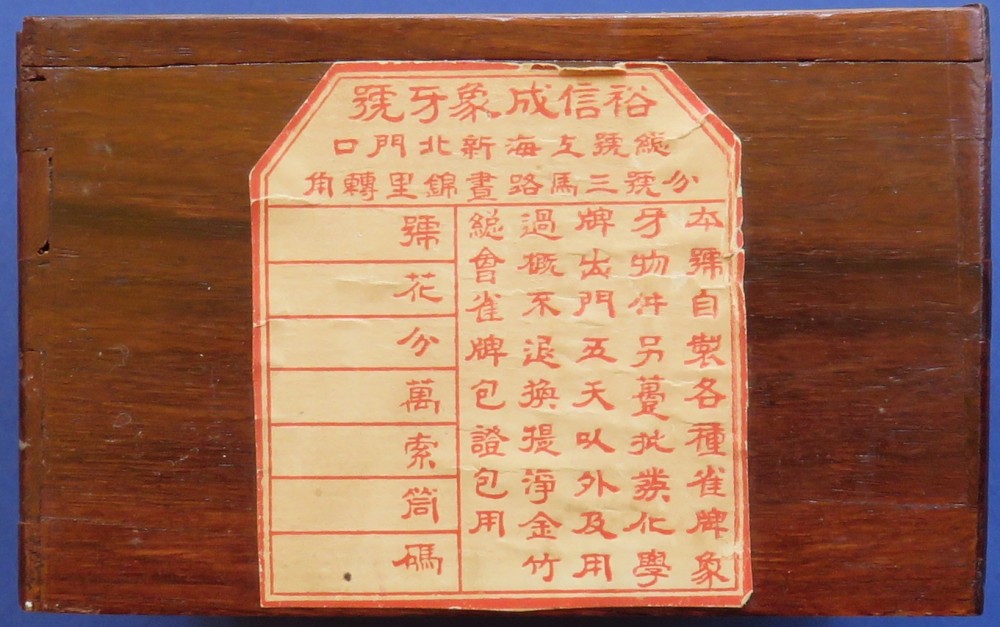 裕信成象牙號
緫號上海新北門口
分號三馬路晝錦里轉角
本號自製各種雀牌象
牙物件另躉批發化學
牌出門五天以外及用
過概不退換提淨金竹
緫會雀牌包證包用
號
花
分
萬
索
筒
碼